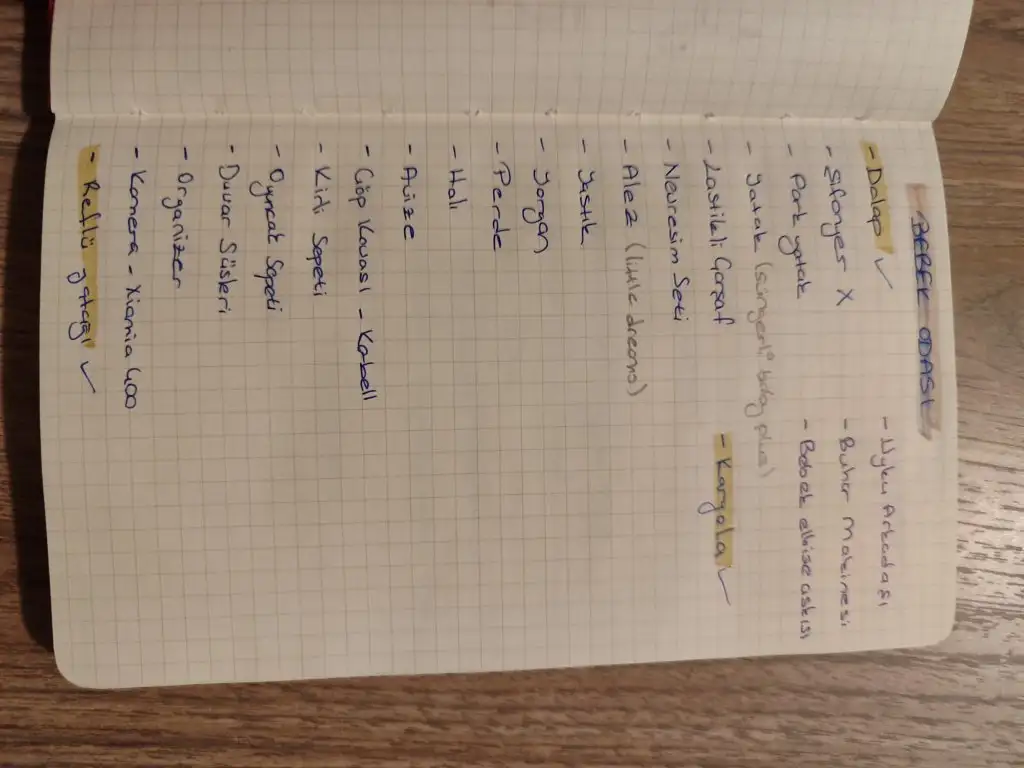 BEBEK ODASI
- Dolap ✓
- Şifonyer X
- Park yatak
- Yatak (süngerli baby plus)
- Lastikli Çarşaf
- Nevresim Seti
- Alez (little dreams)
- Yastık
- Yorgan
- Perde
- Halı
- Avize
- Çöp Kovası - Korbell
- Kirli Sepeti
- Oyuncak Sepeti
- Duvar Süsleri
- Organizer
- Kamera - Xiamia 400
- Reflü yatağı ✓
- Uyku Arkadaşı
- Buhar Makinesi
- Bebek elbise askısı
- Karyola ✓